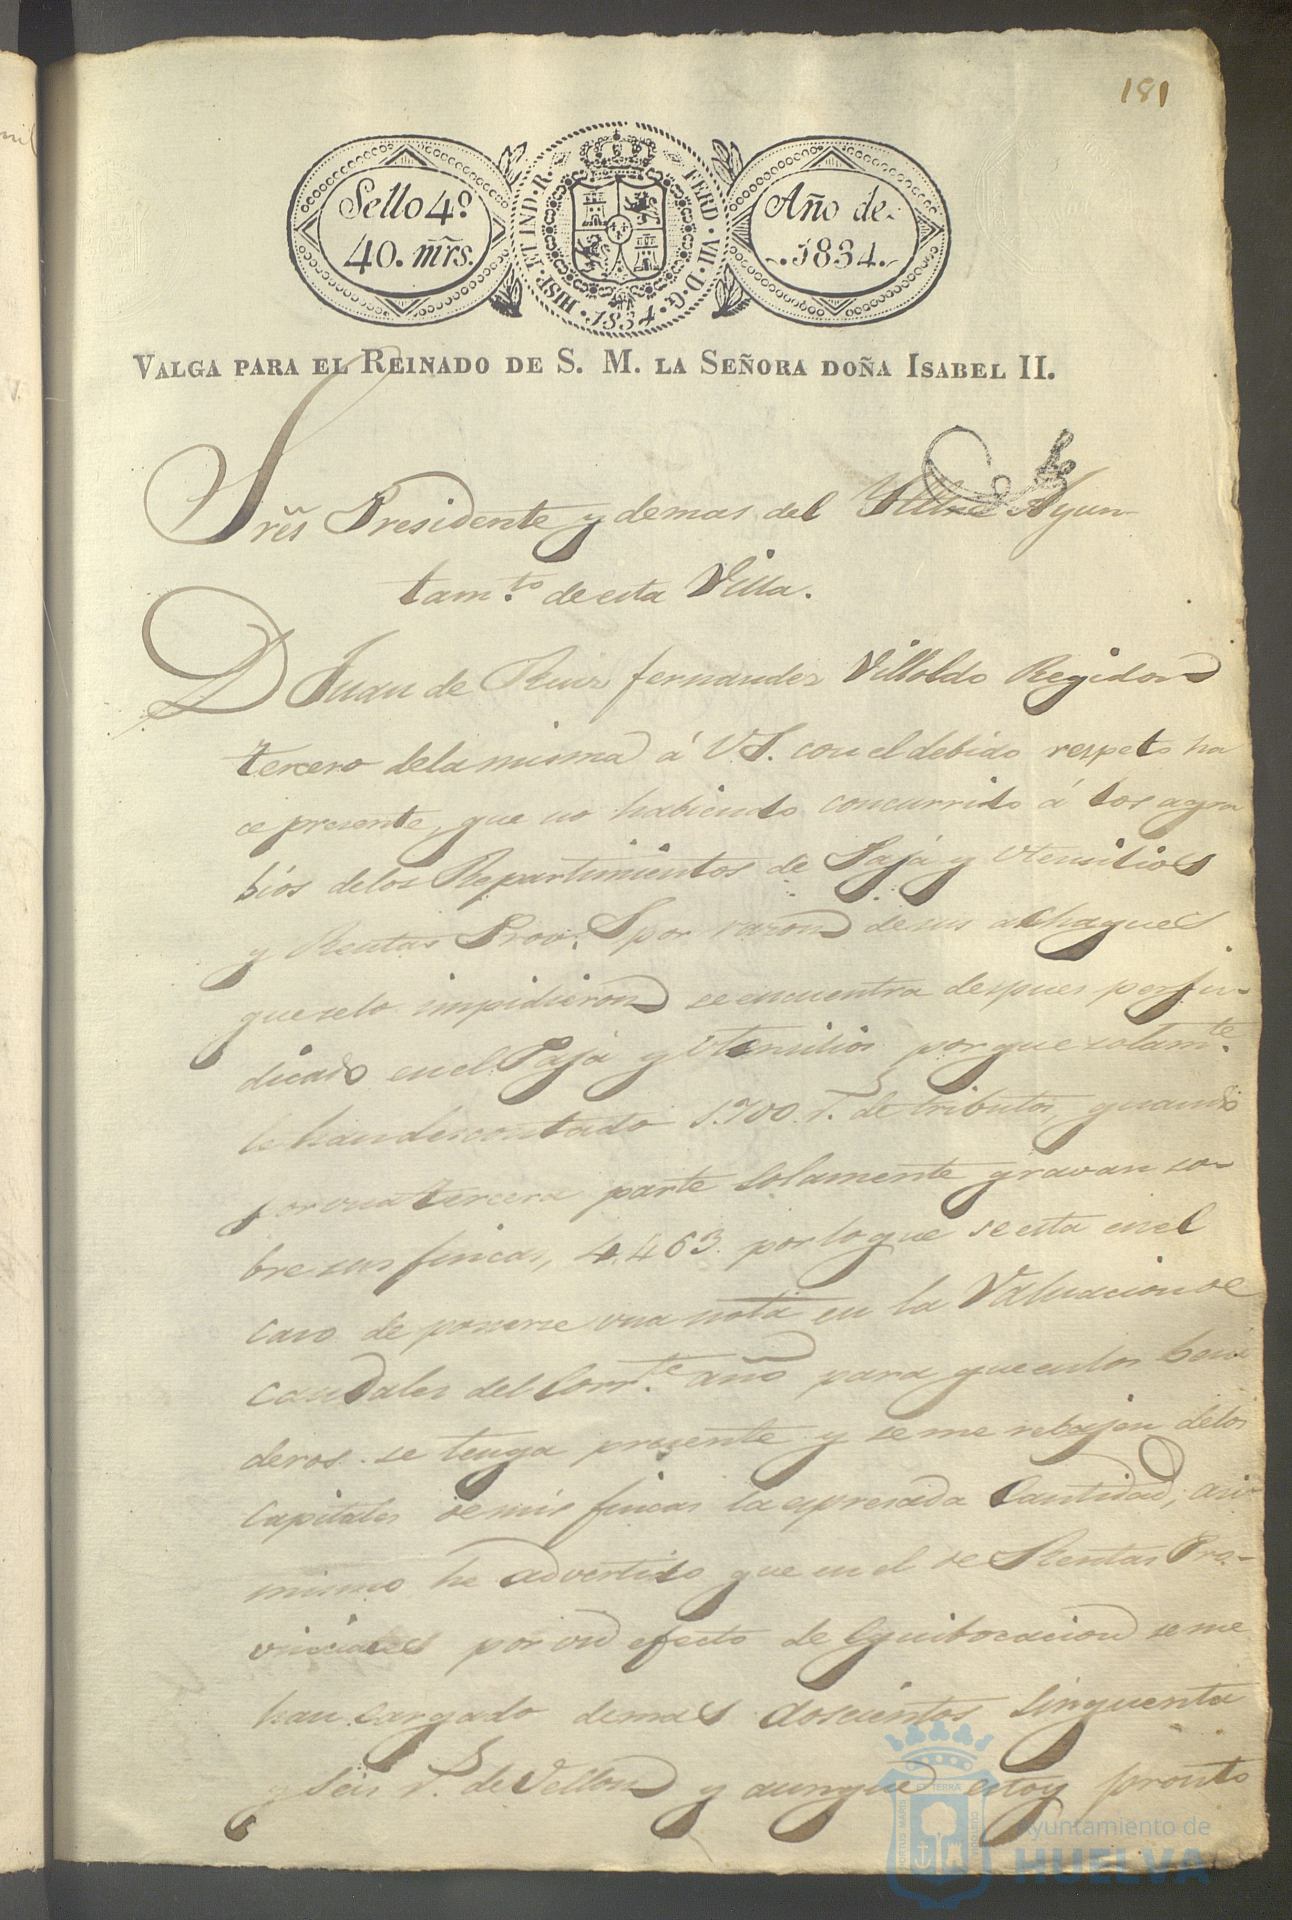 181
Sello 4º
40. mrs.
HISP. ET IND. R.
FERD. VII. D. G.
1834
Año de
1834.
VALGA PARA EL REINADO DE S. M. LA SEÑORA DOÑA ISABEL II.
Sres Presidente y demas del Ayun-
tamto de esta Villa.
D Juan de Ruiz fernandez Villoldo Regidor
tercero dela misma á V.S. con el debido respeto ha
ce presente, que no habiendo concurrido á los agra
bios delos Repartimientos de Paja y Utensilios
y Rentas Prov.s por razon de sus alchaques
que selo impidieron se encuentra despues perju-
dicado en el Paja y Utensilios por que solamte
le han descontado 1.700 r.s de tributos, quando
por una tercera parte solamente gravan so-
bre sus fincas, 4.463. por lo que se esta en el
caso de ponerse una nota en la Valuacion de
caudales del Corrte. año para que en los beni
deros se tenga presente y se me rebajen delos
capitales de mis fincas la espresada Cantidad; asi-
mismo he advertido que en el de Rentas Pro-
vinciales por un efecto de Equibocacion se me
han cargado demas doscientos Cinquenta
y seis r.s de Vellon y aunque estoy pronto
PORTUS MARIS ET TERRAE CUSTODIA
Ayuntamiento de
HUELVA